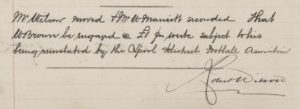 Mr Wilson moved & Mr W Marriott seconded That
W Brown be engaged @ £1 per week subject to his
being reinstated by the Lpool & District Football Association
Robert Wilson